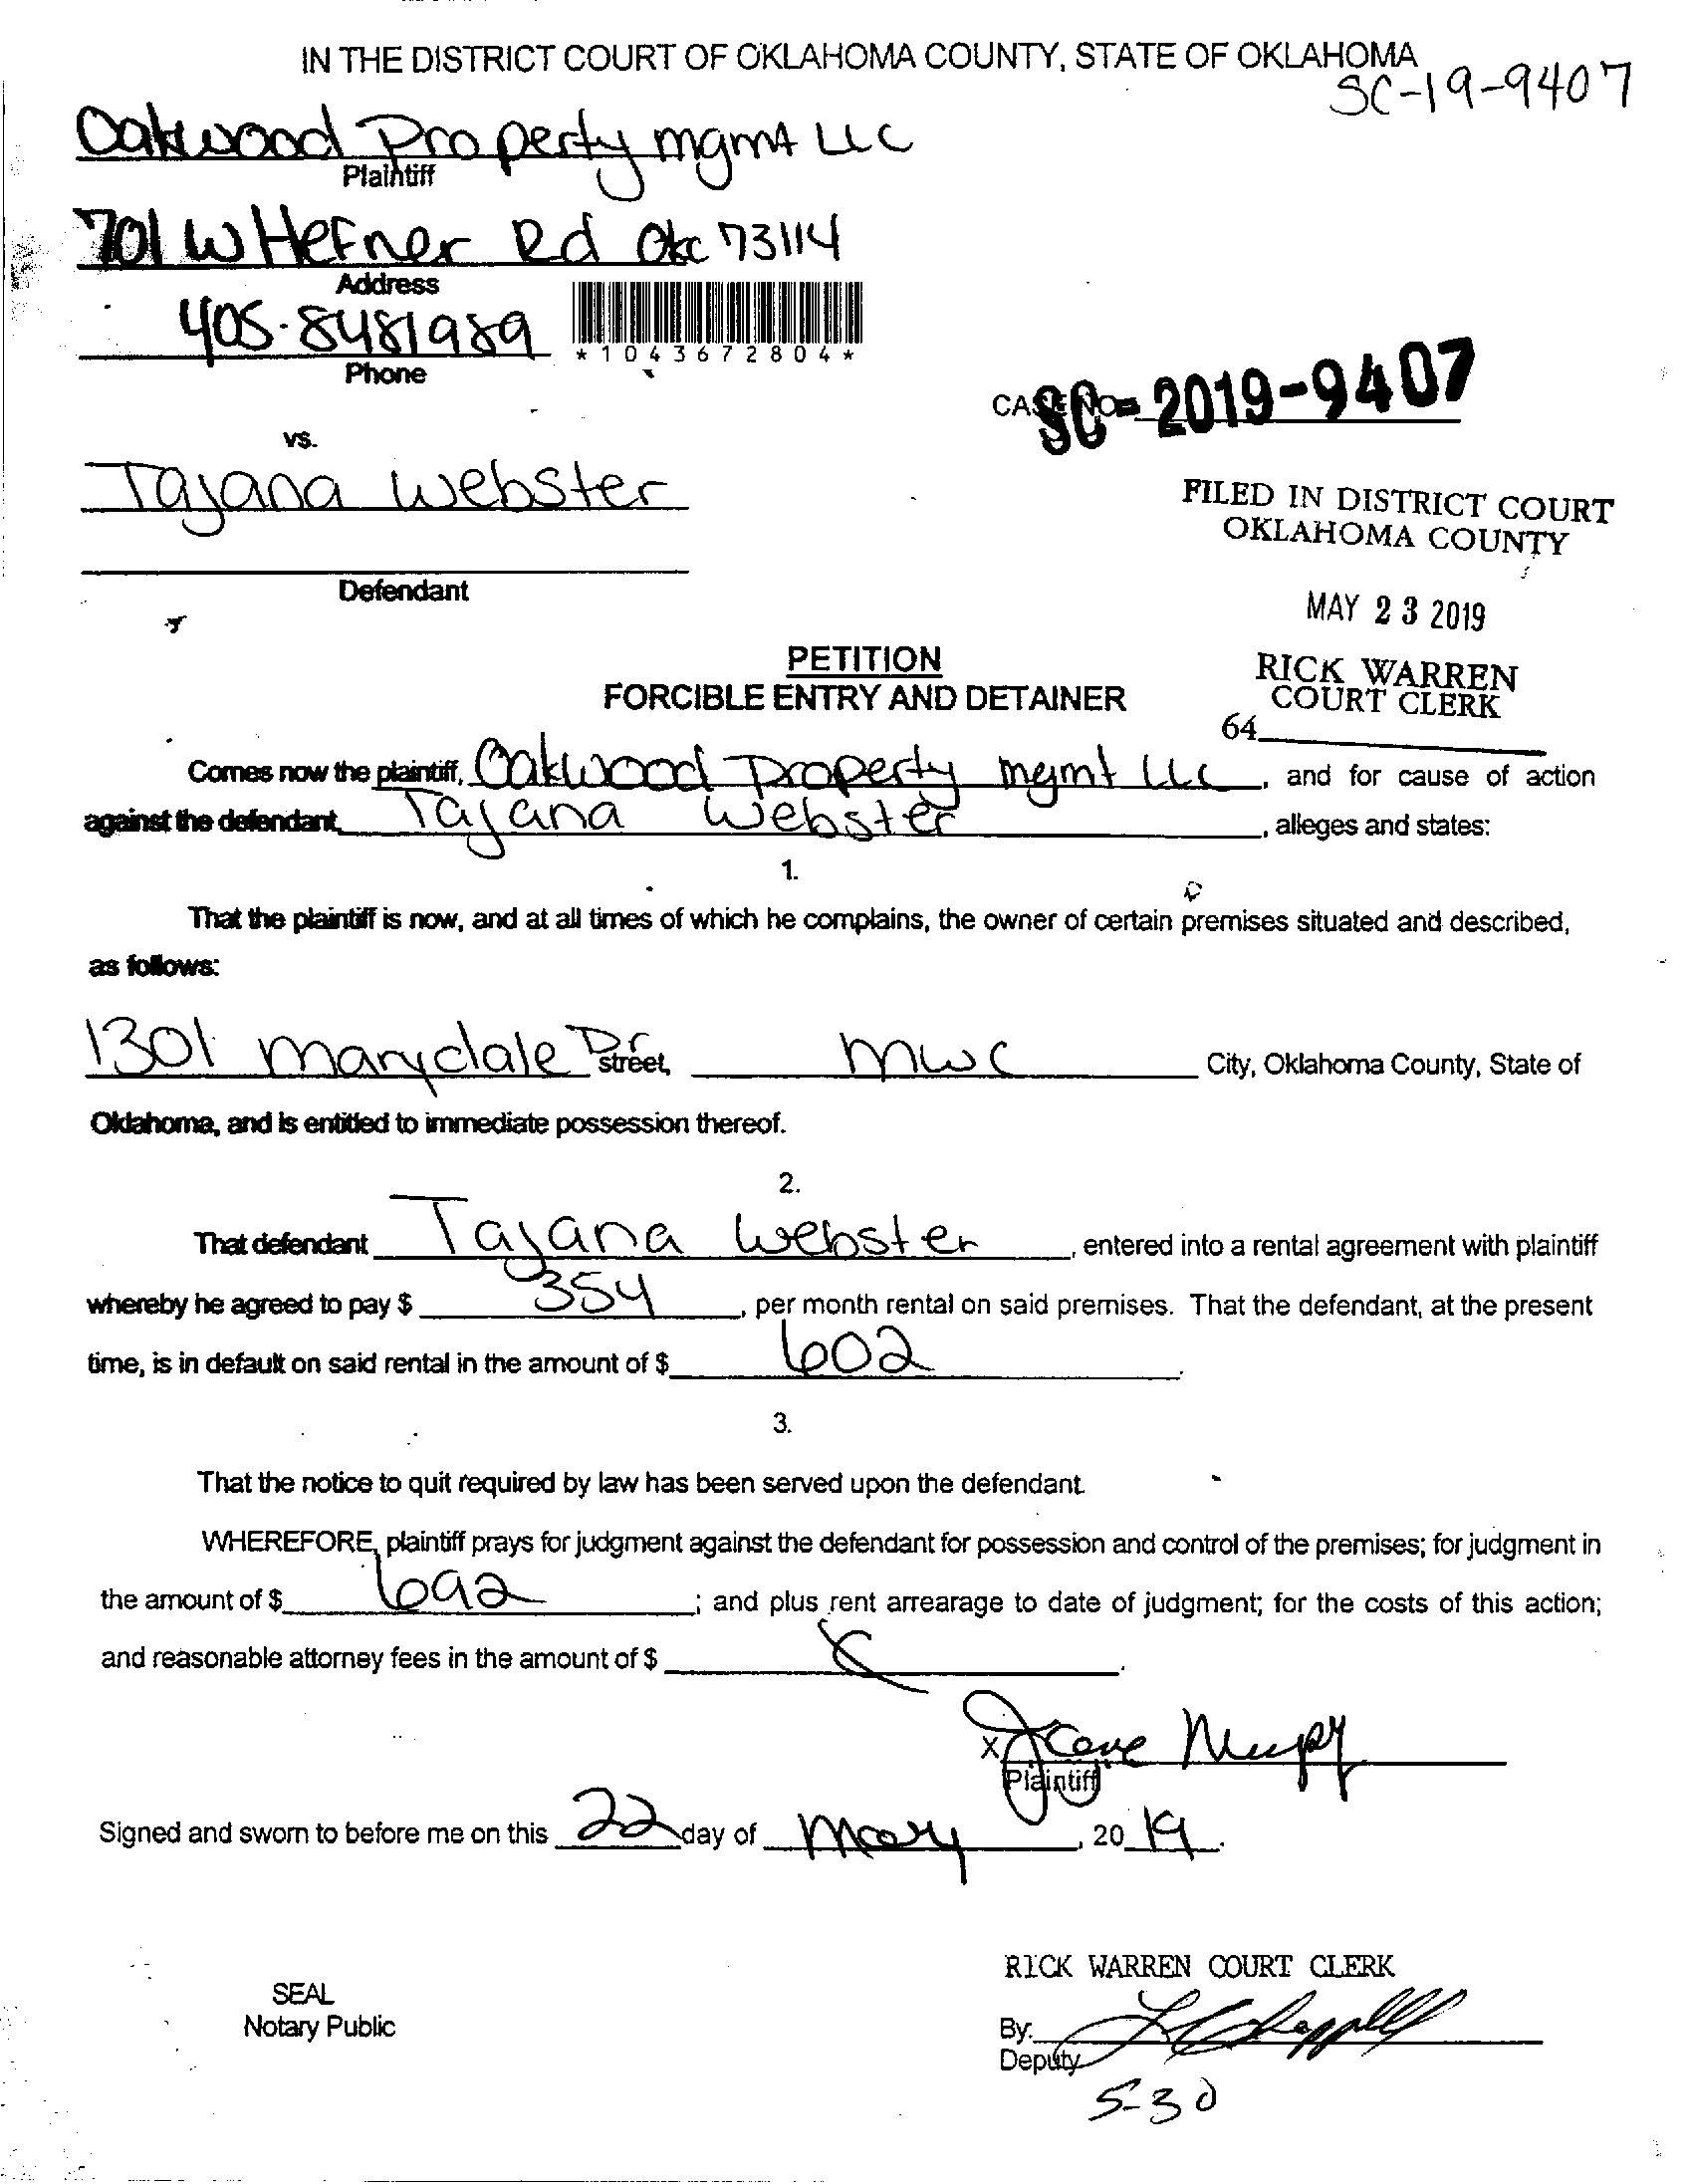 IN THE DISTRICT COURT OF OKLAHOMA COUNTY, STATE OF OKLAHOMA
SC-19-9407
Oakwood Property mgmt LLC
Plaintiff
701 W Hefner Rd Okc 73114
Address
405-8481989
*1043672804*
Phone
CASE NO. SC-2019-9407
vs.
Tajana Webster
FILED IN DISTRICT COURT
OKLAHOMA COUNTY
Defendant
MAY 23 2019
PETITION
RICK WARREN
COURT CLERK
FORCIBLE ENTRY AND DETAINER
64
Comes now the plaintiff, Oakwood Property mgmt LLC, and for cause of action
against the defendant, Tajana Webster, alleges and states:
1.
That the plaintiff is now, and at all times of which he complains, the owner of certain premises situated and described,
as follows:
1301 Marydale Dr street, MWC City, Oklahoma County, State of
Oklahoma, and is entitled to immediate possession thereof.
2.
That defendant Tajana Webster, entered into a rental agreement with plaintiff
whereby he agreed to pay $ 354, per month rental on said premises. That the defendant, at the present
time, is in default on said rental in the amount of $ 602.
3.
That the notice to quit required by law has been served upon the defendant.
WHEREFORE, plaintiff prays for judgment against the defendant for possession and control of the premises; for judgment in
the amount of $ 692; and plus rent arrearage to date of judgment; for the costs of this action;
and reasonable attorney fees in the amount of $
X
Plaintiff
Signed and sworn to before me on this 22 day of May, 2019.
RICK WARREN COURT CLERK
SEAL
Notary Public
By:
Deputy
5-30